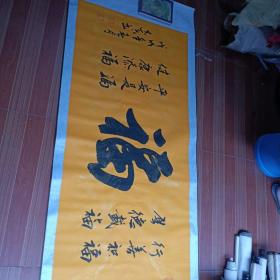 行善积福
厚德载福
福
平安是福
健康添福